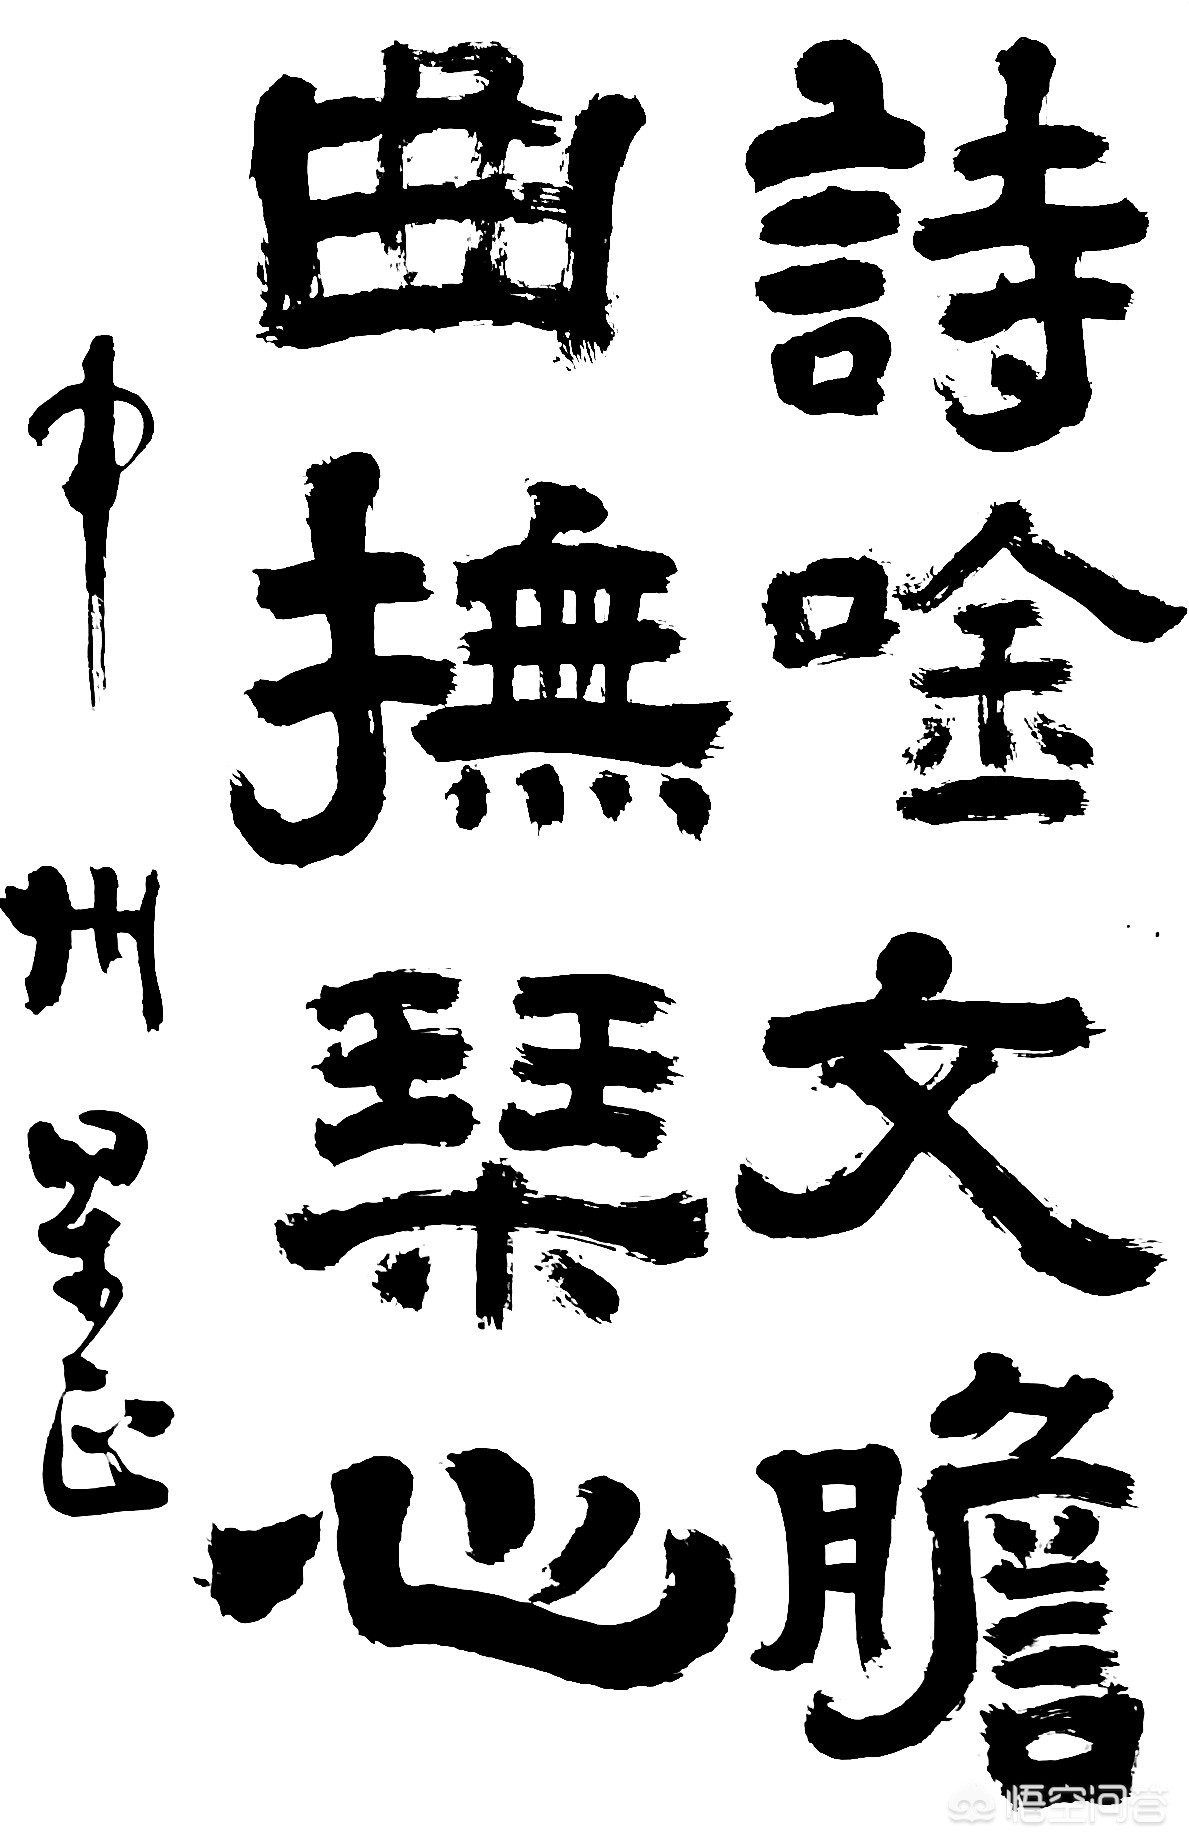 詩唫文膽
曲撫琹心
中州
悟空问答